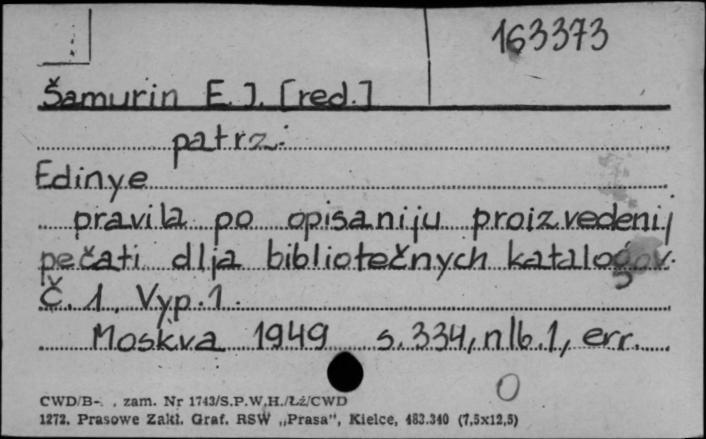 163373
Šamurin E. J. [red.]
patrz:
Edinye
pravila po opisaniju proizvedenij
pečati dlja bibliotečnych katalogov.
Č. 1. Vyp. 1.
Moskva 1949 s. 334, nlb. 1, err.
CWD/B-. . zam. Nr 1743/S.P.W.H./Łż/CWD
1272. Prasowe Zakł. Graf. RSW „Prasa", Kielce, 483.340 (7,5x12,5)